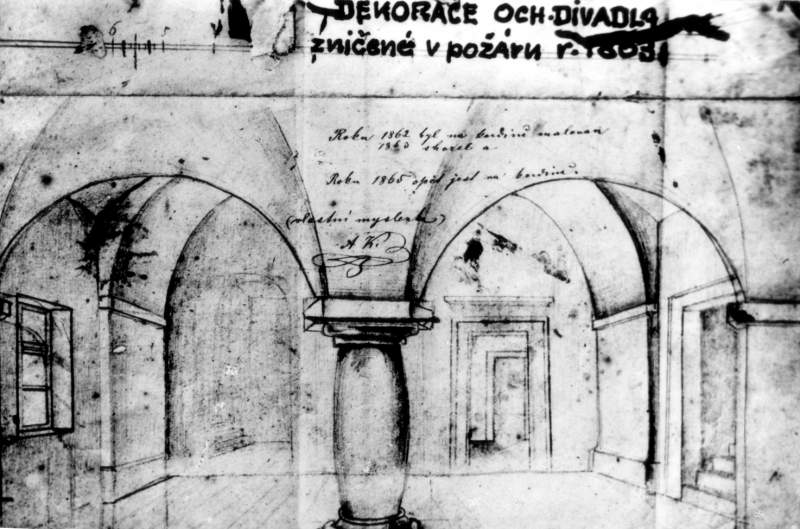 DEKORACE OCH. DIVADLA
zničené v požáru r. 1863.
6 5
Roku 1862 byl na bordinu malován
1863 shořel a
Roku 1865 opět jest na bordinu.
(vlastní myslenka)
A K.